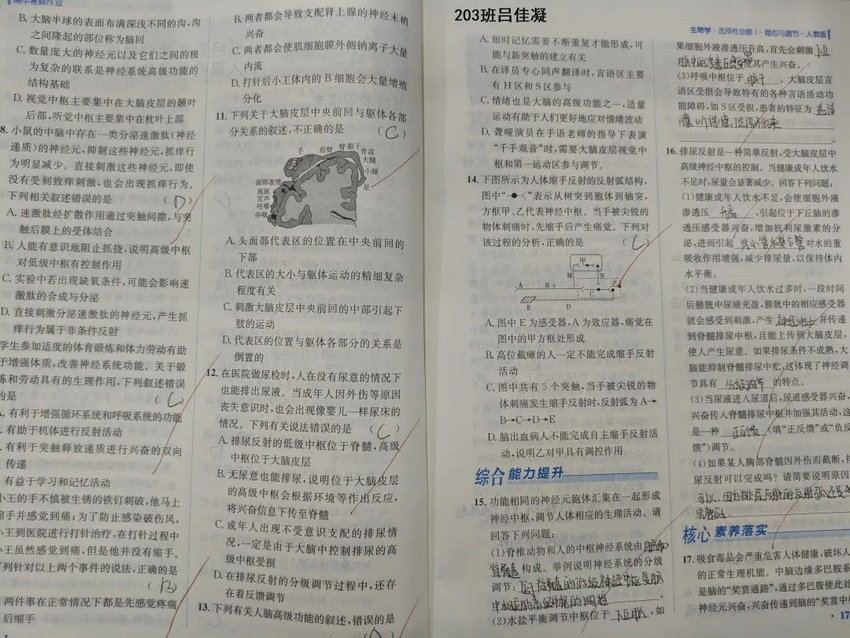 高中寒假作业
B. 大脑半球的表面布满深浅不同的沟,沟
之间隆起的部位称为脑回
C. 数量庞大的神经元以及它们之间的极
为复杂的联系是神经系统高级功能的
结构基础
D. 视觉中枢主要集中在大脑皮层的颞叶
后部,听觉中枢主要集中在枕叶上部
8. 小鼠的中脑存在一类分泌速激肽(神经
递质)的神经元,抑制这些神经元,抓痒行
为明显减少。直接刺激这些神经元,即使
没有受到致痒刺激,也会出现抓痒行为。
下列相关叙述错误的是 (D)
A. 速激肽经扩散作用通过突触间隙,与突
触后膜上的受体结合
B. 人能有意识地阻止抓挠,说明高级中枢
对低级中枢有控制作用
C. 实验中若出现缺氧条件,可能会影响速
激肽的合成与分泌
D. 直接刺激分泌速激肽的神经元,产生抓
痒行为属于非条件反射
学生参加适度的体育锻炼和体力劳动有助
于增强体质,改善神经系统功能。关于锻
炼和劳动具有的生理作用,下列叙述错误
的是
有利于增强循环系统和呼吸系统的功能
有助于机体进行反射活动
有利于突触释放递质进行兴奋的双向
传递
有益于学习和记忆活动
小王的手不慎被生锈的铁钉刺破,他马上
缩手并感觉到痛;为了防止感染破伤风,
小王到医院进行打针治疗,在打针过程中
小王虽然感觉到痛,但是他并没有缩手。
下列针对以上两个事件的说法,正确的是
(B)
两件事在正常情况下都是先感觉疼痛
后缩手
B. 两者都会导致支配肾上腺的神经末梢
兴奋
C. 两者都会使肌细胞膜外侧钠离子大量
内流
D. 打针后小王体内的B细胞会大量增殖
分化
11. 下列关于大脑皮层中央前回与躯体各部
分关系的叙述,不正确的是 (C)
手 前臂 臂 躯干 背部
大腿
小腿
足
面部表情
流涎
发声
咀嚼
吞咽
A. 头面部代表区的位置在中央前回的
下部
B. 代表区的大小与躯体运动的精细复杂
程度有关
C. 刺激大脑皮层中央前回的中部引起下
肢的运动
D. 代表区的位置与躯体各部分的关系是
倒置的
12. 在医院做尿检时,人在没有尿意的情况下
也能排出尿液。当成年人因外伤等原因
丧失意识时,也会出现像婴儿一样尿床的
情况。下列有关说法错误的是 (C)
A. 排尿反射的低级中枢位于脊髓,高级
中枢位于大脑皮层
B. 无尿意也能排尿,说明位于大脑皮层
的高级中枢会根据环境等作出反应,
将兴奋信息下传至脊髓
C. 成年人出现不受意识支配的排尿情
况,一定是由于大脑中控制排尿的高
级中枢受损
D. 在排尿反射的分级调节过程中,还存
在着反馈调节
13. 下列有关人脑高级功能的叙述,错误的是
203班吕佳凝
生物学·选择性必修1·稳态与调节·人教版
A. 短时记忆需要不断重复才能形成,可
能与新突触的建立有关
B. 在译员专心同声翻译时,言语区主要
有H区和S区参与
C. 情绪也是大脑的高级功能之一,适量
运动有助于人们更好地应对情绪波动
D. 聋哑演员在手语老师的指导下表演
“千手观音”时,需要大脑皮层视觉中
枢和第一运动区参与调节。
14. 下图所示为人体缩手反射的反射弧结构,
图中“ ”表示从树突到胞体到轴突,
方框甲、乙代表神经中枢。当手被尖锐的
物体刺痛时,先缩手后产生痛觉。下列对
该过程的分析,正确的是 (C)
甲
M N
A B
C
E D
A. 图中E为感受器,A为效应器,痛觉在
图中的甲方框处形成
B. 高位截瘫的人一定不能完成缩手反射
活动
C. 图中共有5个突触,当手被尖锐的物
体刺痛发生缩手反射时,反射弧为A→
B→C→D→E
D. 脑出血病人不能完成自主缩手反射活
动,说明乙对甲具有调控作用
综合 能力提升
15. 功能相同的神经元胞体汇集在一起形成
神经中枢,调节人体相应的生理活动。请
回答下列问题:
(1)脊椎动物和人的中枢神经系统由 脑和
脊髓 构成。举例说明神经系统的分级
调节:
(2)水盐平衡调节中枢位于 下丘脑 ,如
果细胞外液渗透压升高,首先会刺激 下丘
其产生兴奋。
(3)呼吸中枢位于 脑干 ,大脑皮层言
语区受损会导致特有的各种言语活动功
能障碍,如S区受损,患者的特征为
16. 排尿反射是一种简单反射,受大脑皮层中
高级神经中枢的控制。当健康成年人饮水
不足时,尿量会显著减少。回答下列问题:
(1)健康成年人饮水不足,会使细胞外液
渗透压 升高 ,引起位于下丘脑的渗
透压感受器兴奋,增加抗利尿激素的分
泌,进而引起 对水的重
吸收作用增强,减少排尿量,以保持体内
水平衡。
(2)当健康成年人饮水过多时,一段时间
后膀胱中尿液充盈,膀胱中的相应感受器
就会感受到刺激,产生 神经冲动 并传递
到脊髓排尿中枢,且能上传到大脑皮层,
使人产生尿意。如果排尿条件不成熟,大
脑能抑制脊髓排尿中枢,这体现了神经调
节具有 分级调节 的特点。
(3)当尿液进入尿道后,尿道感受器兴奋,
兴奋传入脊髓排尿中枢并加强其活动,这
是一种 正反馈 (填“正反馈”或“负反
馈”)调节。
(4)如果某人胸部脊髓因外伤而截断,排
尿反射可以完成吗?请简要说明原因
核心 素养落实
17. 吸食毒品会严重危害人体健康,破坏人
的正常生理机能。中脑边缘多巴胺系
是脑的“奖赏通路”,通过多巴胺使此处
神经元兴奋,兴奋传递到脑的“奖赏中
17